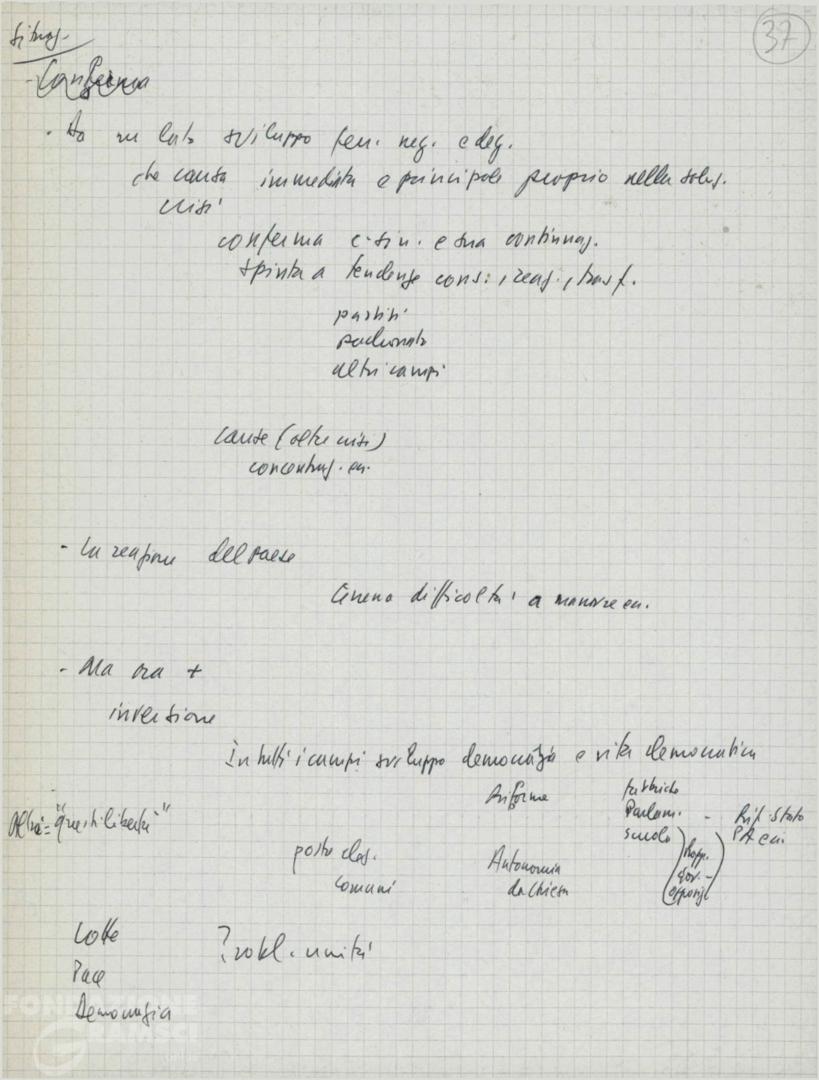 37
Situaz.
- Conferma
. Da un lato sviluppo fen. neg. e deg.
che causa immediata e principale proprio nella soluz.
crisi
conferma c-sin. e sua continuaz.
spinta a tendenze cons., reaz., trasf.
partiti
padronato
altri campi
cause (oltre crisi)
concentraz. ec.
- La reazione del paese
Creano difficoltà a manovre ec.
- Ma ora +
inversione
In tutti i campi sviluppo democrazia e vita democratica
Riforme
fabbriche
Parlam. - Rif. Stato
scuola
PA ecc.
Rapp.
gov.-
opposiz.
"questi libertà"
poste dag.
comuni
Autonomia
da Chiesa
Lotte
Pace
Democrazia
Probl. unità
FONDAZIONE
GRAMSCI